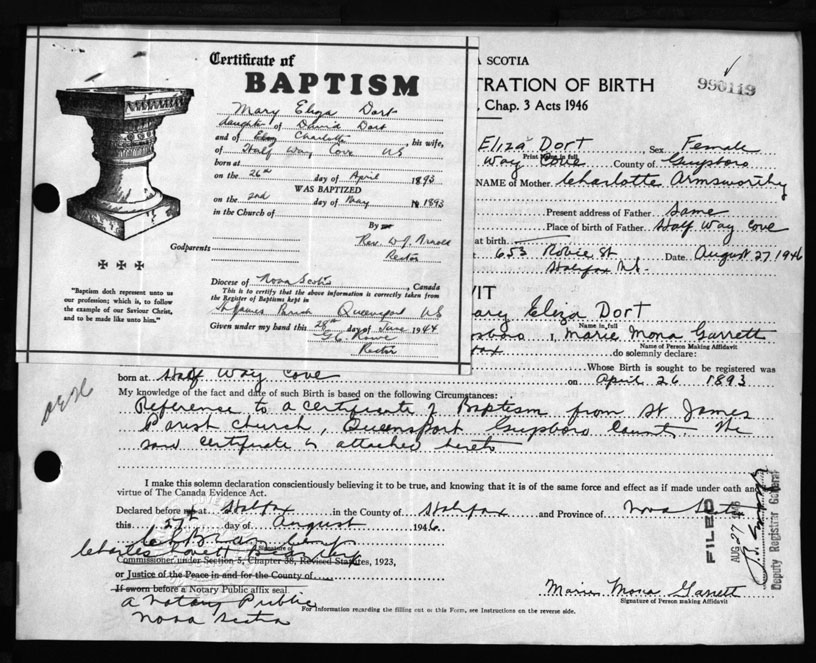 Certificate of
BAPTISM
Mary Eliza Dort
daughter of David Dort
and of Charlotte, his wife,
of Half Way Cove NS
born at
on the 26th day of April 1893
WAS BAPTIZED
on the 2nd day of May 1893
in the Church of
By
Rev. W J Arnold
Rector
Godparents
Diocese of Nova Scotia, Canada
This is to certify that the above information is correctly taken from
the Register of Baptisms kept in
St James Parish Queensport NS
Given under my hand this 28th day of June 1944
Rowe
Rector
"Baptism doth represent unto us
our profession; which is, to follow
the example of our Saviour Christ,
and to be made like unto him."
A SCOTIA
TRATION OF BIRTH
990119
, Chap. 3 Acts 1946
Eliza Dort Sex Female
Print Name in full
Way Cove County of Guysboro
NAME of Mother Charlotte Armsworthy
Present address of Father Same
Place of birth of Father Half Way Cove
at birth
653 Robie St Date August 27 1946
Halifax NS.
VIT
ary Eliza Dort
Name in full
sboro I, Marie Mona Garrett
Name of Person Making Affidavit
fax do solemnly declare:
Whose Birth is sought to be registered was
born at Half Way Cove on April 26 1893
My knowledge of the fact and date of such Birth is based on the following Circumstances:
Reference to a certificate of Baptism from St James
Parish Church, Queensport Guysboro County. The
said certificate is attached hereto
I make this solemn declaration conscientiously believing it to be true, and knowing that it is of the same force and effect as if made under oath and
virtue of The Canada Evidence Act.
Declared before me at Halifax in the County of Halifax and Province of Nova Scotia
this 27th day of August 1946.
Charles Lovett
Signature of
Commissioner under Section 5, Chapter 38, Revised Statutes, 1923,
or Justice of the Peace in and for the County of
If sworn before a Notary Public affix seal.
A Notary Public
Nova Scotia
For Information regarding the filling out of this Form, see Instructions on the reverse side.
Marie Mona Garrett
Signature of Person making Affidavit
FILED
AUG 27 1946
Deputy Registrar General